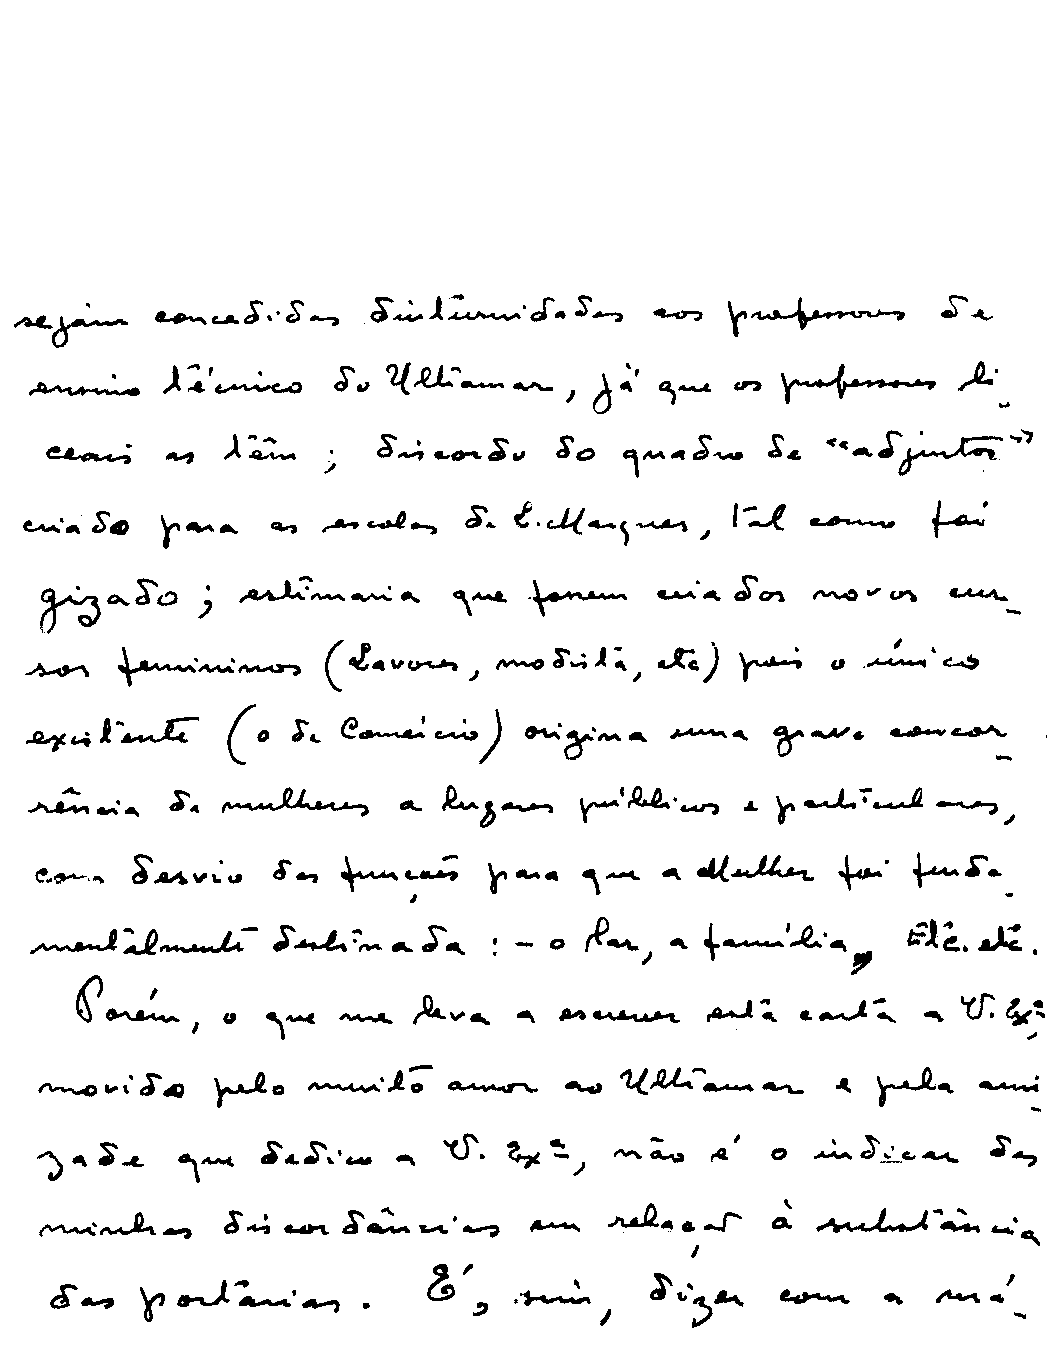 sejam concedidas diuturnidades aos professores de
ensino técnico do Ultramar, já que os professores li-
ceais as têm; discordo do quadro de "adjuntos"
criado para as escolas de L. Marques, tal como foi
gizado; estimaria que fossem criados novos cur-
sos femininos (Lavores, modista, etc) pois o único
existente (o de Comércio) origina uma grave concor-
rência de mulheres a lugares públicos e particulares,
com desvio das funções para que a Mulher foi funda-
mentalmente destinada: - o lar, a família, Etc. etc.
Porém, o que me leva a escrever esta carta a V. Exª,
movido pelo muito amor ao Ultramar e pela ami-
zade que dedico a V. Exª, não é o indicar das
minhas discordâncias em relação à substância
das portarias. É, sim, dizer com a má-